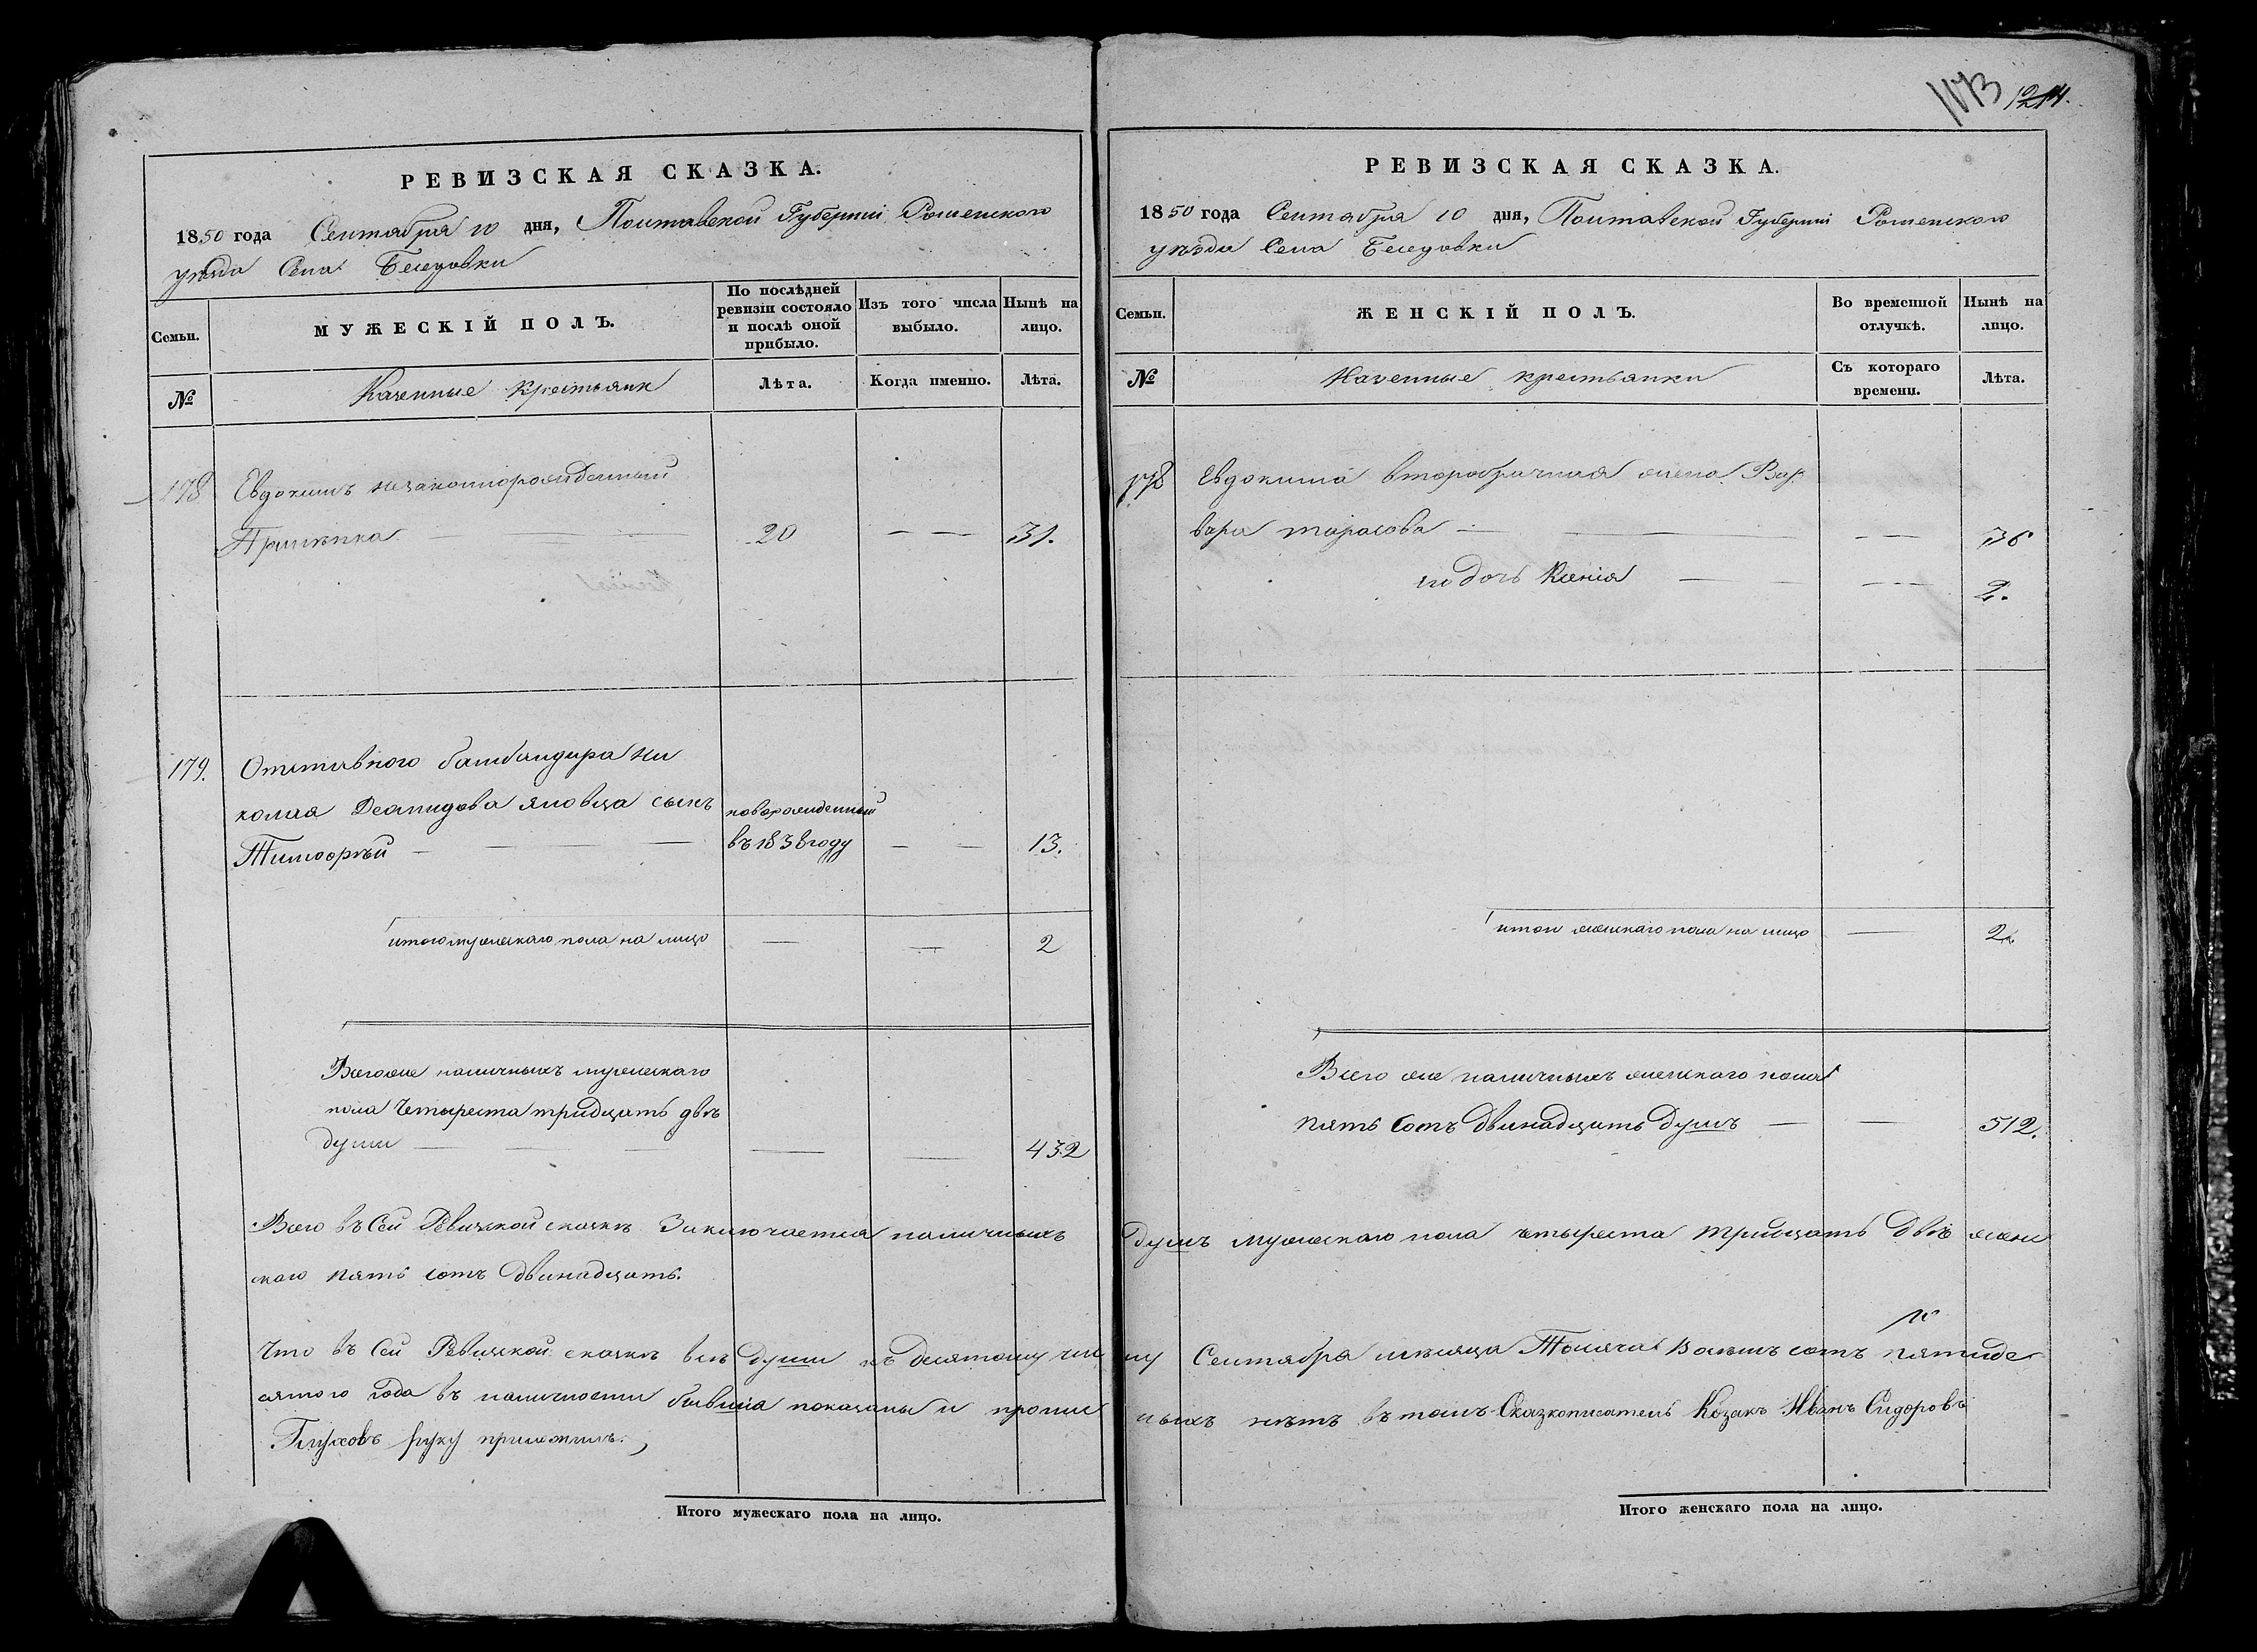 1173 1214.
РЕВИЗСКАЯ СКАЗКА.
1850 года Сентября 10 дня, Полтавской Губерніи Роменского
уѣзда Села Беседовки
Семьи.
МУЖЕСКІЙ ПОЛЪ.
По послѣдней ревизіи состояло и послѣ оной прибыло.
Изъ того числа выбыло.
Нынѣ на лицо.
№
Казенные Крестьяне
Лѣта.
Когда именно.
Лѣта.
178 Евдокимъ незаконнорожденный
20 — — 31.
179. Отставного бомбандира Ни
колая Демидова Яновца сынъ новорожденный
Тимофей — — — въ 183 году — — 13.
итого мужескаго пола на лицо — — 2
Всего же наличныхъ мужескаго
пола Четыреста тридцать двѣ
души — — — — — 432
РЕВИЗСКАЯ СКАЗКА.
1850 года Сентября 10 дня, Полтавской Губерніи Роменского
уѣзда Села Беседовки
Семьи.
ЖЕНСКІЙ ПОЛЪ.
Во временной отлучкѣ.
Нынѣ на лицо.
№
Казенные крестьянки
Съ котораго времени.
Лѣта.
178 Евдокима второбрачная жена Вар
вара тарасова — — — — 36
ихъ дочь Ксенія — — — — 2.
итого женскаго пола на лицо — 2.
Всего же наличныхъ женскаго пола
пять сотъ двенадцать душъ — — 512.
Всего въ Сей Ревизской сказкѣ Заключается наличныхъ душъ мужескаго пола четыреста тридцать двѣ женс
каго пять сотъ двенадцать.
Что въ Сей Ревизской сказкѣ всѣ души къ десятому чис лу Сентября мѣсяца Тысяча Восемь сотъ пятиде
сятого года въ наличности бывшіа показаны и пропис ныхъ нѣтъ въ томъ Сказкописатель Козакъ Иванъ Сидоровъ
Глуховъ руку приложилъ.
Итого мужескаго пола на лицо.
Итого женскаго пола на лицо.